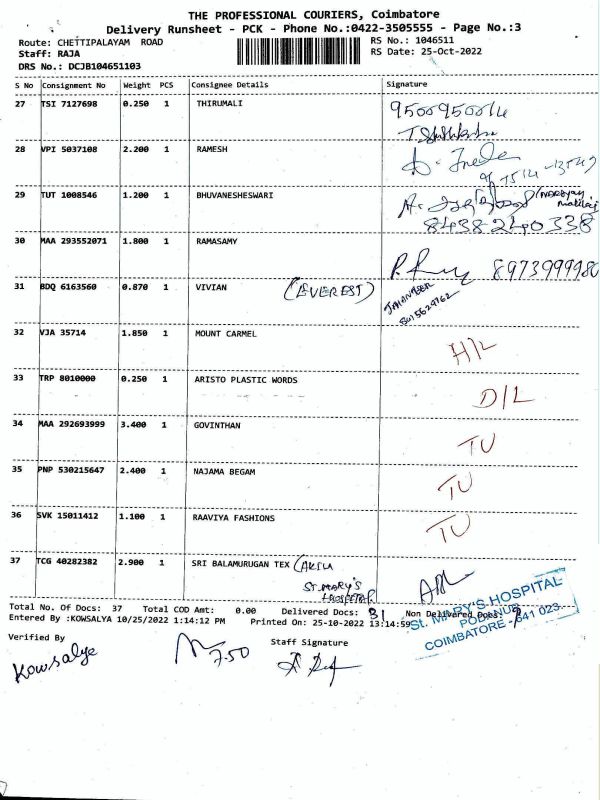 THE PROFESSIONAL COURIERS, Coimbatore
Delivery Runsheet - PCK - Phone No.:0422-3505555 - Page No.:3
Route: CHETTIPALAYAM ROAD
RS No.: 1046511
Staff: RAJA
RS Date: 25-Oct-2022
DRS No.: DCJB104651103
S No Consignment No Weight PCS Consignee Details Signature
27 TSI 7127698 0.250 1 THIRUMALI 9500950014
28 VPI 5037108 2.200 1 RAMESH
29 TUT 1008546 1.200 1 BHUVANESHESWARI
8438240338
30 MAA 293552071 1.800 1 RAMASAMY
8973999980
31 BDQ 6163560 0.870 1 VIVIAN (EVEREST)
32 VJA 35714 1.850 1 MOUNT CARMEL H/L
33 TRP 8010000 0.250 1 ARISTO PLASTIC WORDS D/L
34 MAA 292693999 3.400 1 GOVINTHAN TU
35 PNP 530215647 2.400 1 NAJAMA BEGAM TU
36 SVK 15011412 1.100 1 RAAVIYA FASHIONS TU
37 TCG 40282382 2.900 1 SRI BALAMURUGAN TEX
ST.MARY'S
HOSPITAL
Total No. Of Docs: 37 Total COD Amt: 0.00 Delivered Docs: 31 Non Delivered Docs:
Entered By :KOWSALYA 10/25/2022 1:14:12 PM Printed On: 25-10-2022 13:14:59
St. MARY'S HOSPITAL
PODANUR
COIMBATORE - 641 023
Verified By
Staff Signature
Kowsalye
7.50